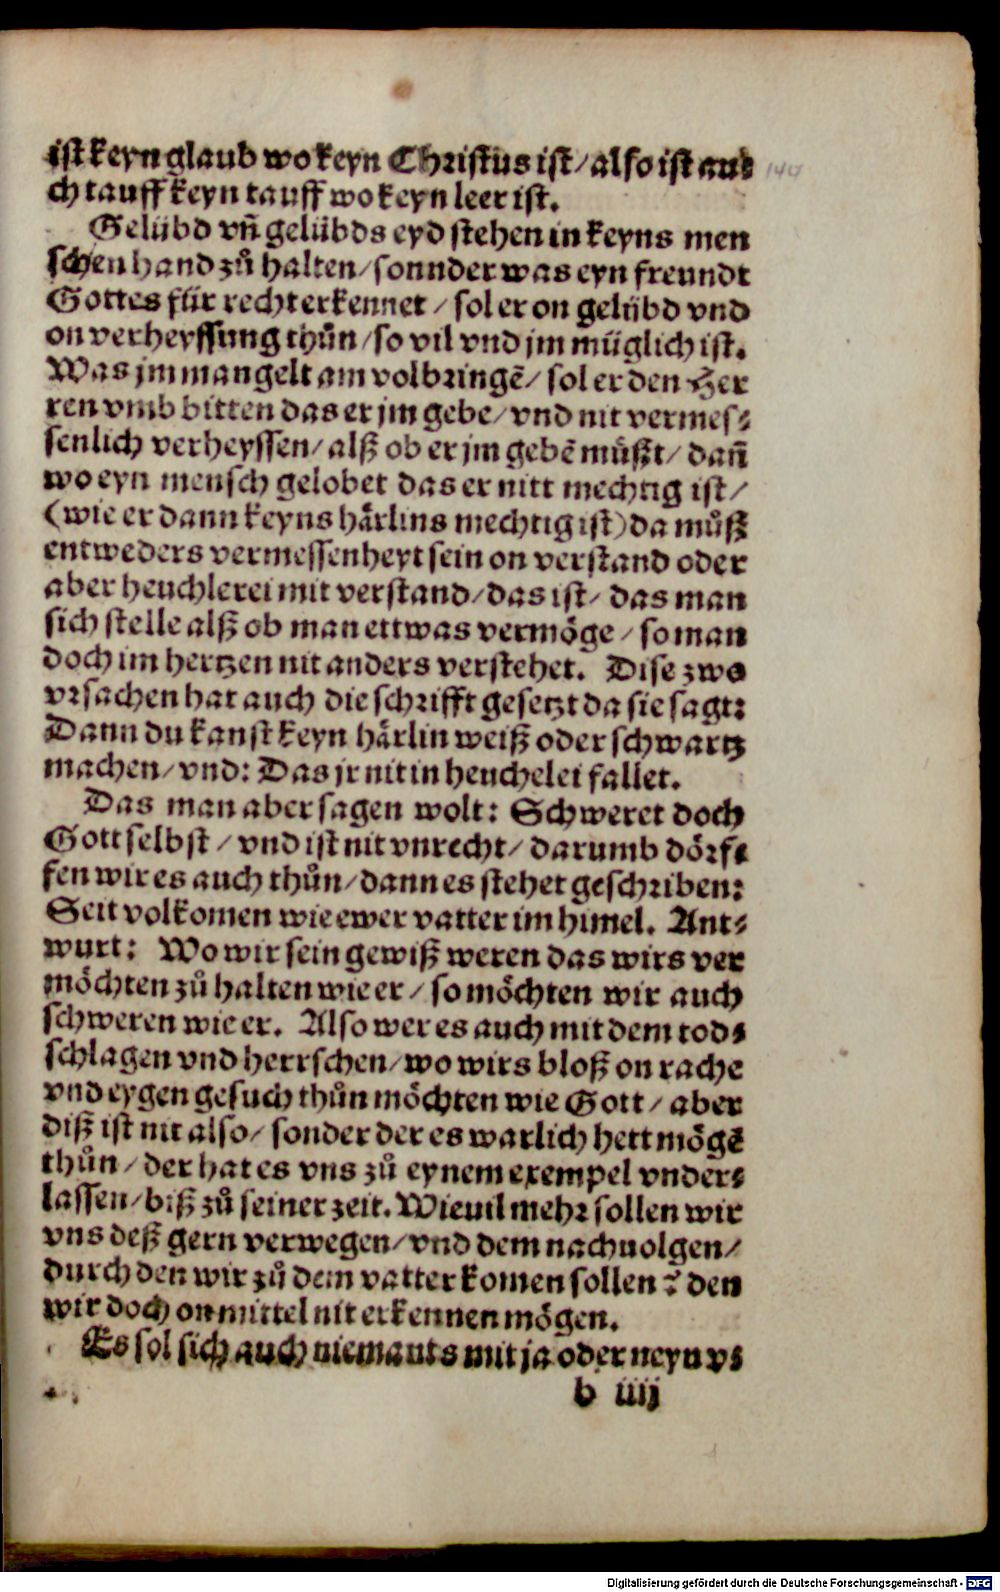 ist keyn glaub wo keyn Christus ist/ also ist au⸗
ch tauff keyn tauff wo keyn leer ist.
Gelübd vñ gelübds eyd stehen in keyns men
schen hand zů halten/ sonnder was eyn freundt
Gottes für recht erkennet / sol er on gelübd vnd
on verheyssung thůn/ so vil vnd jm müglich ist.
Was jm mangelt am volbringē/ sol er den Her
ren vmb bitten das er jm gebe/ vnd nit vermes⸗
senlich verheyssen/ alß ob er jm gebē müßt/ dañ
wo eyn mensch gelobet das er nitt mechtig ist/
(wie er dann keyns härlins mechtig ist) da můß
entweders vermessenheyt sein on verstand oder
aber heuchlerei mit verstand/ das ist/ das man
sich stelle alß ob man ettwas vermöge / so man
doch im hertzen nit anders verstehet. Dise zwo
vrsachen hat auch die schrifft gesetzt da sie sagt:
Dann du kanst keyn härlin weiß oder schwartz
machen/ vnd: Das jr nit in heuchelei fallet.
Das man aber sagen wolt: Schweret doch
Gott selbst / vnd ist nit vnrecht/ darumb dörf⸗
fen wir es auch thůn/ dann es stehet geschriben:
Seit volkomen wie ewer vatter im himel. Ant⸗
wurt: Wo wir sein gewiß weren das wirs ver
möchten zů halten wie er / so möchten wir auch
schweren wie er. Also wer es auch mit dem tod⸗
schlagen vnd herrschen/ wo wirs bloß on rache
vnd eygen gesuch thůn möchten wie Gott / aber
diß ist nit also/ sonder der es warlich hett mögē
thůn / der hat es vns zů eynem exempel vnder⸗
lassen/ biß zů seiner zeit. Wieuil mehr sollen wir
vns deß gern verwegen/ vnd dem nachuolgen/
durch den wir zů dem vatter komen sollen? den
wir doch on mittel nit erkennen mögen.
Es sol sich auch niemants mit ja oder neyn v⸗
b iiij
Digitalisierung gefördert durch die Deutsche Forschungsgemeinschaft - DFG